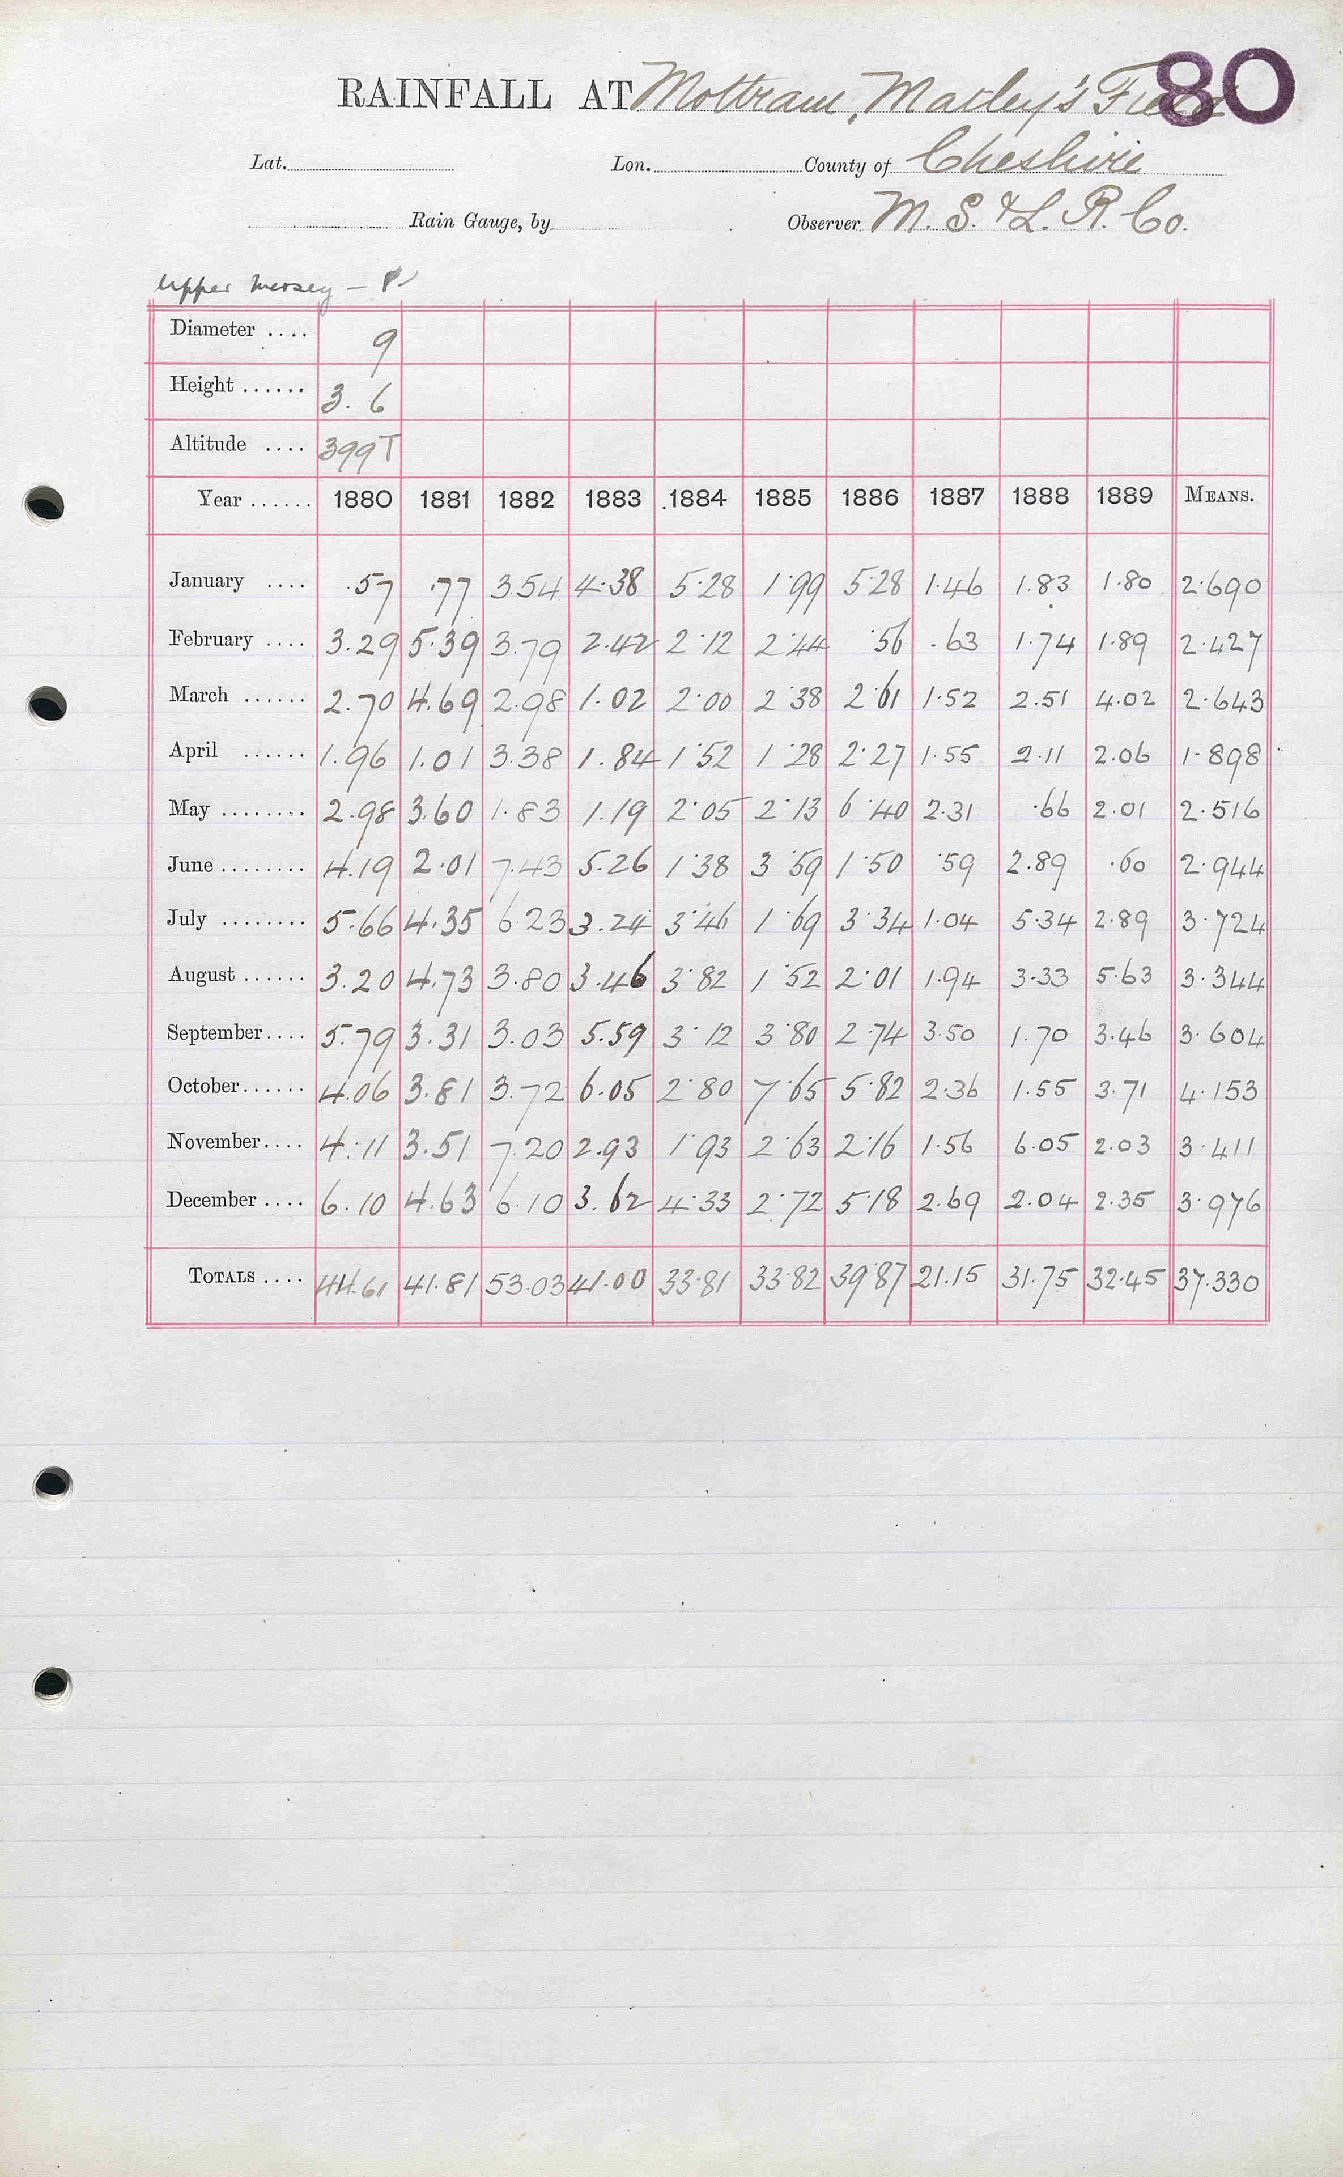 80
RAINFALL AT Mottram, Matley's Field
Lat. Lon. County of Cheshire
Rain Gauge, by Observer M. S. & L. R. Co.
Upper Mersey —
Diameter .... 9
Height ...... 3. 6
Altitude .... 399T
Year ...... 1880 1881 1882 1883 1884 1885 1886 1887 1888 1889 MEANS.
January .... .57 .77 3.54 4.38 5.28 1.99 5.28 1.46 1.83 1.80 2.690
February .... 3.29 5.39 3.79 2.42 2.12 2.44 .56 .63 1.74 1.89 2.427
March ...... 2.70 4.69 2.98 1.02 2.00 2.38 2.61 1.52 2.51 4.02 2.643
April ...... 1.96 1.01 3.38 1.84 1.52 1.28 2.27 1.55 2.11 2.06 1.898
May ........ 2.98 3.60 1.83 1.19 2.05 2.13 6.40 2.31 .66 2.01 2.516
June ........ 4.19 2.01 7.43 5.26 1.38 3.59 1.50 .59 2.89 .60 2.944
July ........ 5.66 4.35 6.23 3.24 3.46 1.69 3.34 1.04 5.34 2.89 3.724
August ...... 3.20 4.73 3.80 3.46 3.82 1.52 2.01 1.94 3.33 5.63 3.344
September.... 5.79 3.31 3.03 5.59 3.12 3.80 2.74 3.50 1.70 3.46 3.604
October...... 4.06 3.81 3.72 6.05 2.80 7.65 5.82 2.36 1.55 3.71 4.153
November.... 4.11 3.51 7.20 2.93 1.93 2.63 2.16 1.56 6.05 2.03 3.411
December .... 6.10 4.63 6.10 3.62 4.33 2.72 5.18 2.69 2.04 2.35 3.976
TOTALS .... 44.61 41.81 53.03 41.00 33.81 33.82 39.87 21.15 31.75 32.45 37.330